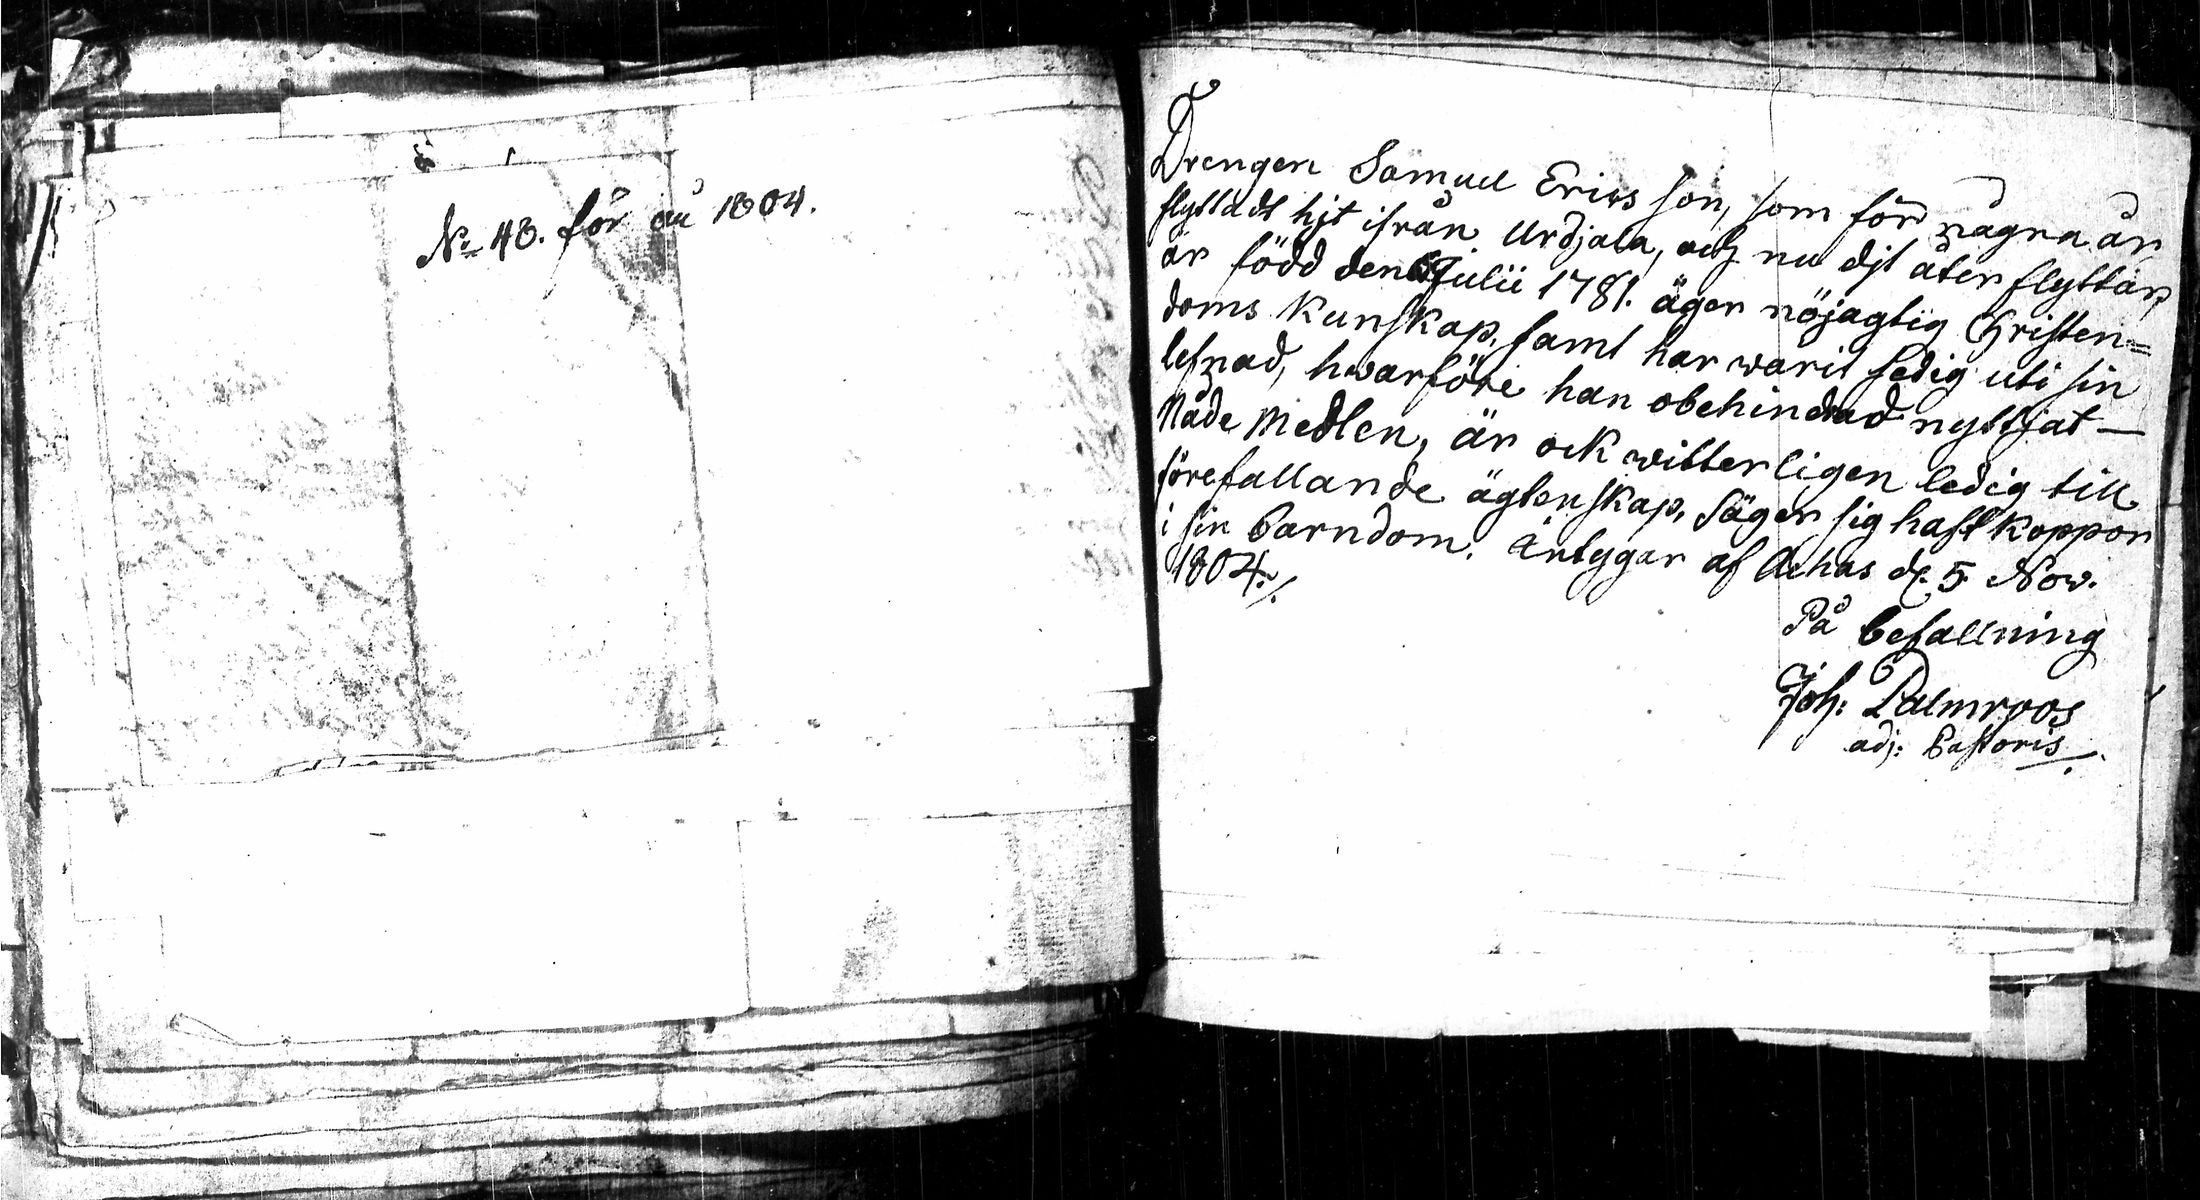 No 48. för åu 1804.
Drengen Samuel Ericsson, som för några år
flyttadt hjt ifrån Urdjala, och nu djt åter flyttar,
är född den Julii 1781. äger nöjagtig Christen=
doms Kunskap, samt har warit sedig uti sin
lefnad, hwarföre han obehindrad nyttjat
Nåde Medlen, är ock witterligen ledig till
förefallande ägtenskap, Säger sig haft koppor
i sin barndom. Äntygar af Achas d. 5 Nov.
1804./.
På befallning
Joh: Palmroos
adj: Pastoris